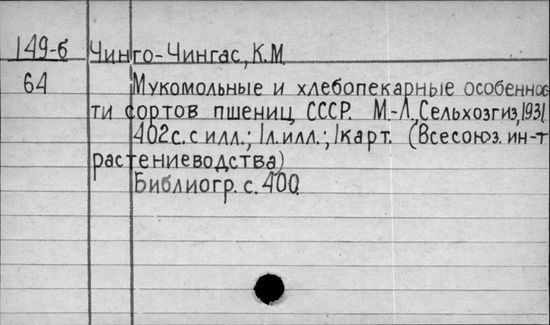 149-б Чинго-Чингас, К.М.
64 Мукомольные и хлебопекарные особеннос
ти сортов пшениц СССР. М.-Л., Сельхозгиз, 1931
402с. с илл.; 1л.илл.; 1карт. (Всесоюз. ин-т
растениеводства)
Библиогр. с. 400.